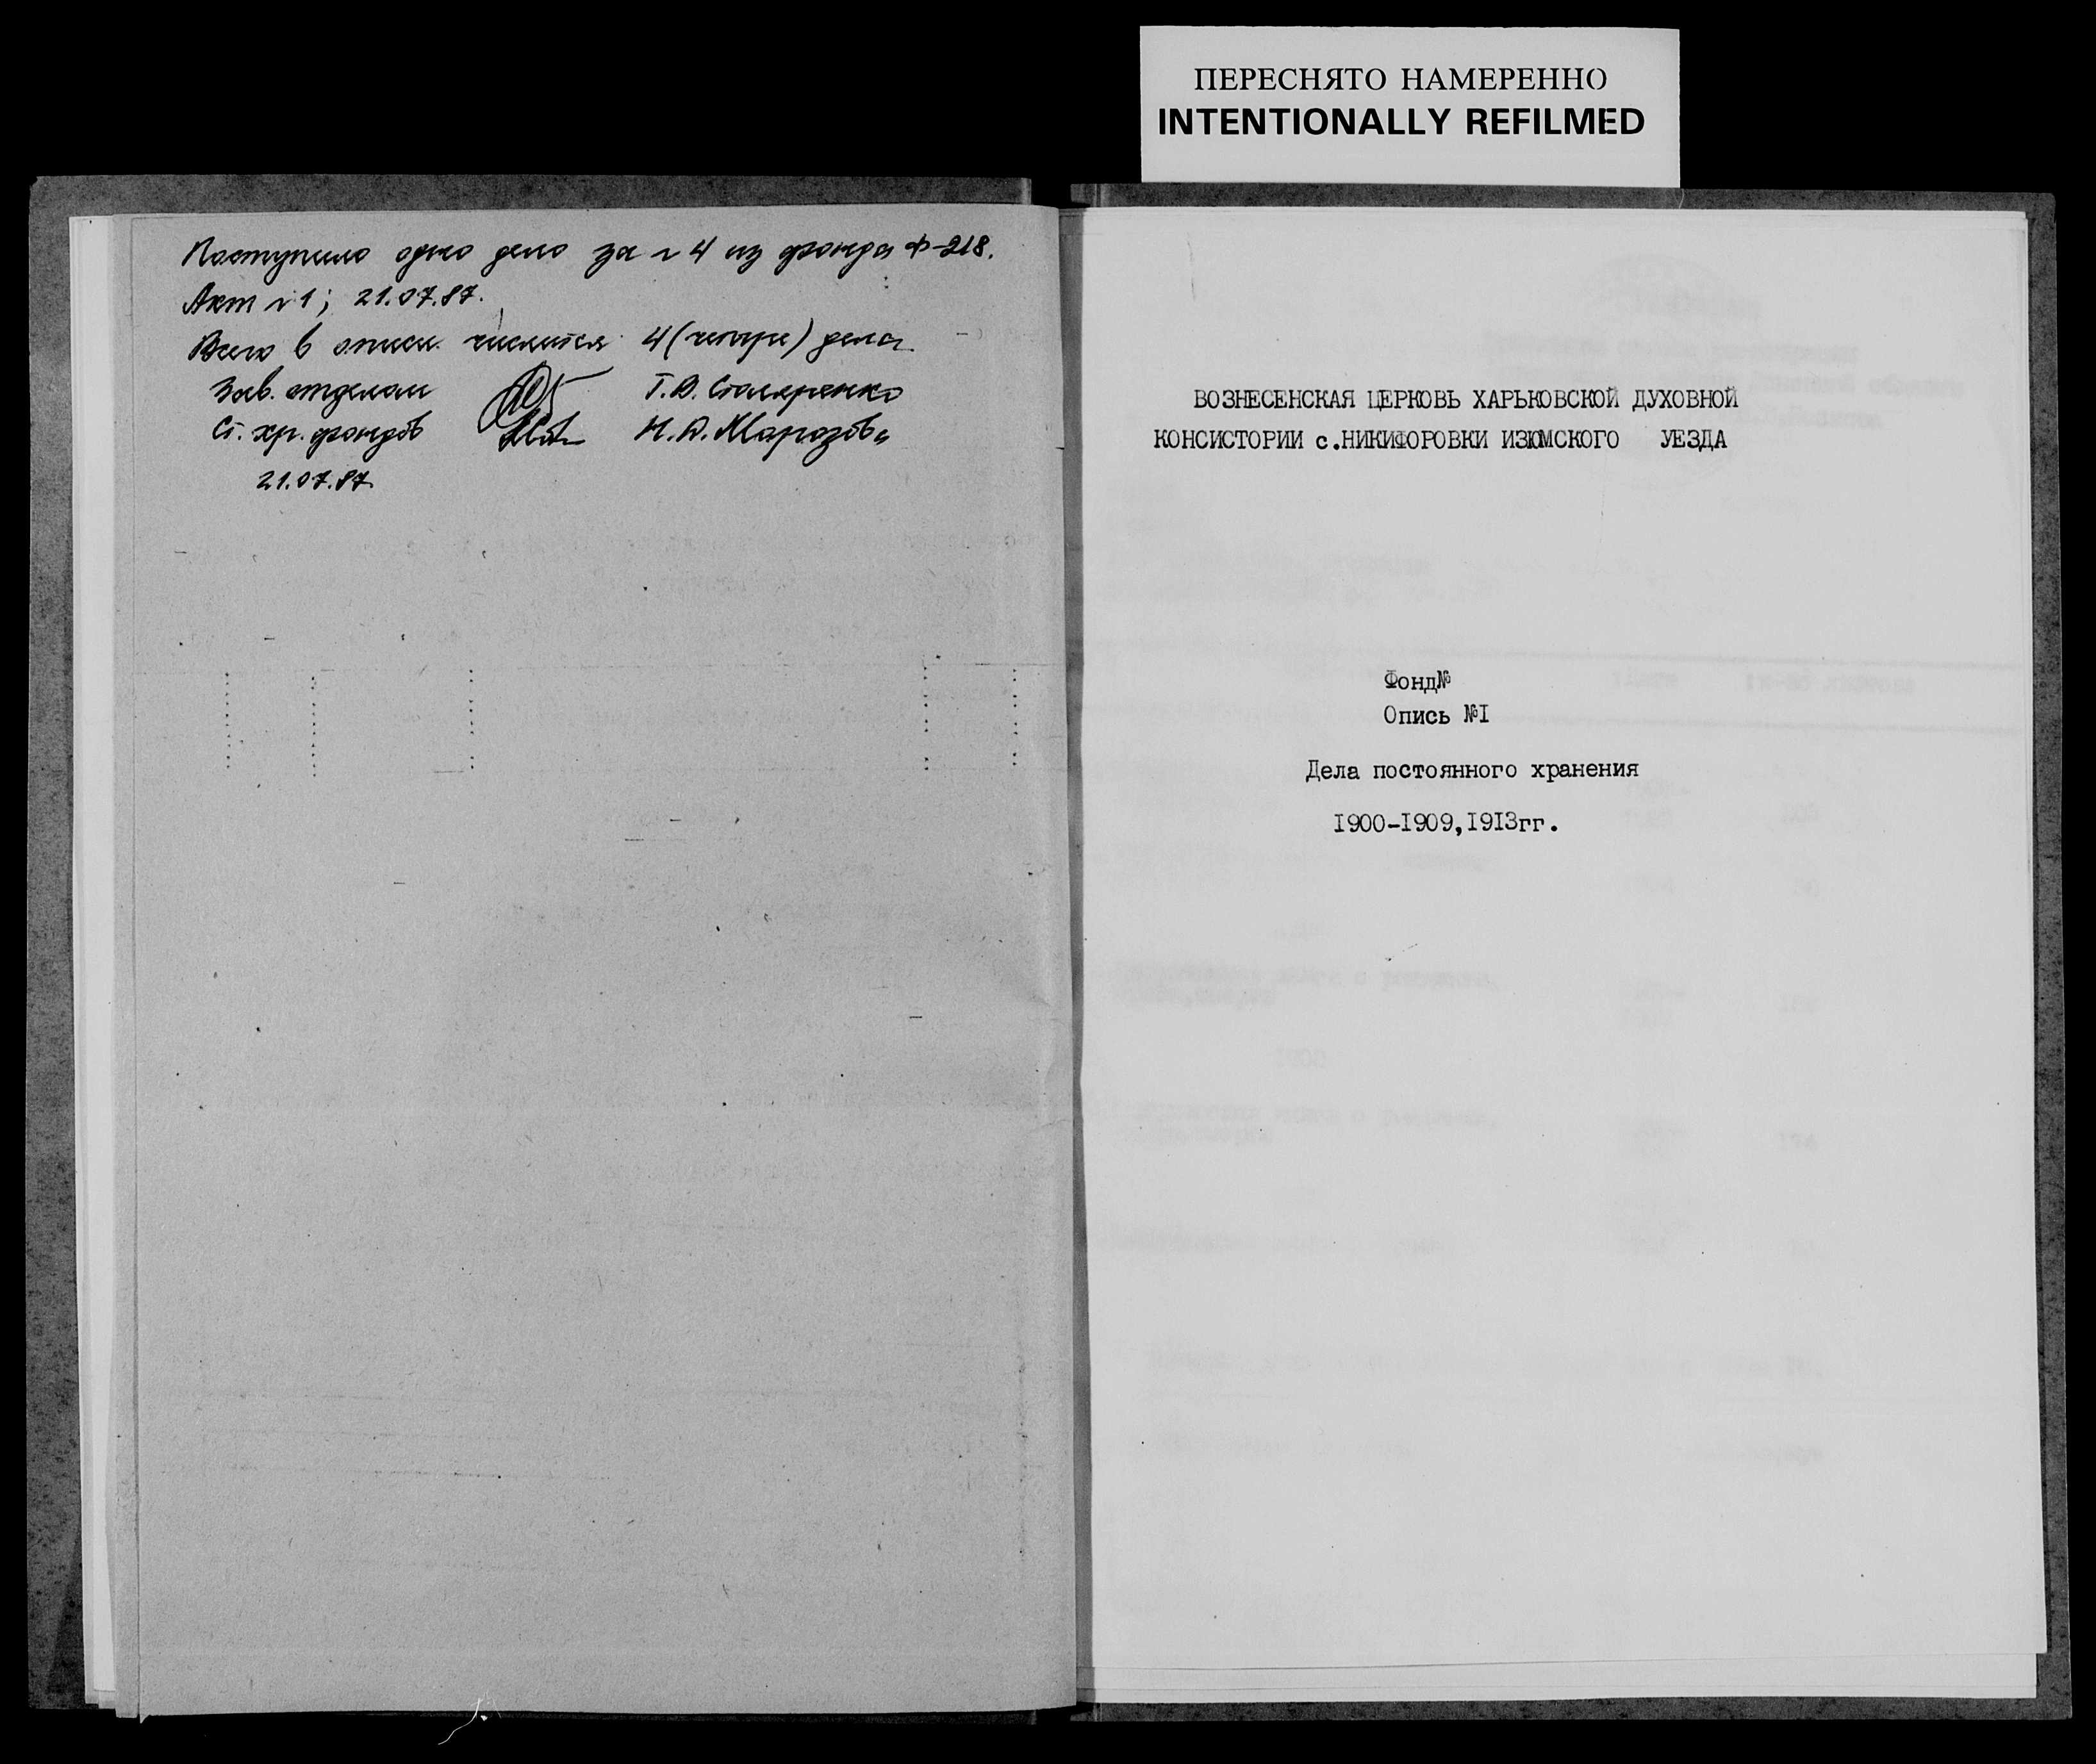 ПЕРЕСНЯТО НАМЕРЕННО
INTENTIONALLY REFILMED
Поступило одно дело за № 4 из фонда Ф-218.
Акт № 1; 21.07.87.
Всего в описи числится 4 (четыре) дела
Зав. отделом Т.В. Столяренко
Ст. хр. фондов Н.А. Морозова
21.07.87.
ВОЗНЕСЕНСКАЯ ЦЕРКОВЬ ХАРЬКОВСКОЙ ДУХОВНОЙ
КОНСИСТОРИИ с.НИКИФОРОВКИ ИЗЮМСКОГО УЕЗДА
Фонд№
Опись №I
Дела постоянного хранения
I900-I909,I9I3гг.